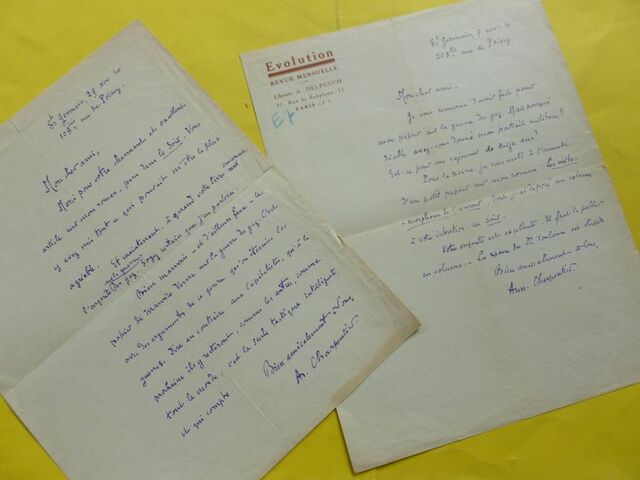 St Germain 29 nov. 30
108bis rue de Poissy.
Mon cher ami,
Merci pour votre charmant et excellent
article sur mon roman, paru dans le Soir. Vous
y avez mis tout ce qui pouvait m'être le plus
agréable. Et maintenant, à quand votre
l'enquête
Bien mauvais, et d'ailleurs faux - le
papier de Maurice Verne sur la guerre du gaz. C'est
avec des arguments de ce genre qu'on éternise les
guerres. Dire au contraire aux capitalistes, qu'à la
prochaine ils y resteront, comme les autres, comme
tout le monde, c'est la seule tactique intelligente,
et qui compte.
Bien amicalement à vous,
An. Charpentier
Evolution
REVUE MENSUELLE
Librairie A. DELPEUCH
51, Rue de Babylone, 51
PARIS (7e)
St Germain, 7 nov. 30
108bis rue de Poissy.
Mon cher ami,
Je vous remercie d'avoir fait passer
mon papier sur la guerre du gaz. Mais pourquoi
diable avez-vous donné mon portrait militaire ?
Est-ce pour me rajeunir de seize ans ?
d'un petit papier sur mon roman : Les méta-
morphoses de l'amour. Dont j'ai déposé un volume
à votre intention, au Soir.
Votre enquête est excellente. Il faut la publier
en volume. - La réponse du Dr Toulouse est
Bien amicalement à vous,
Arm. Charpentier